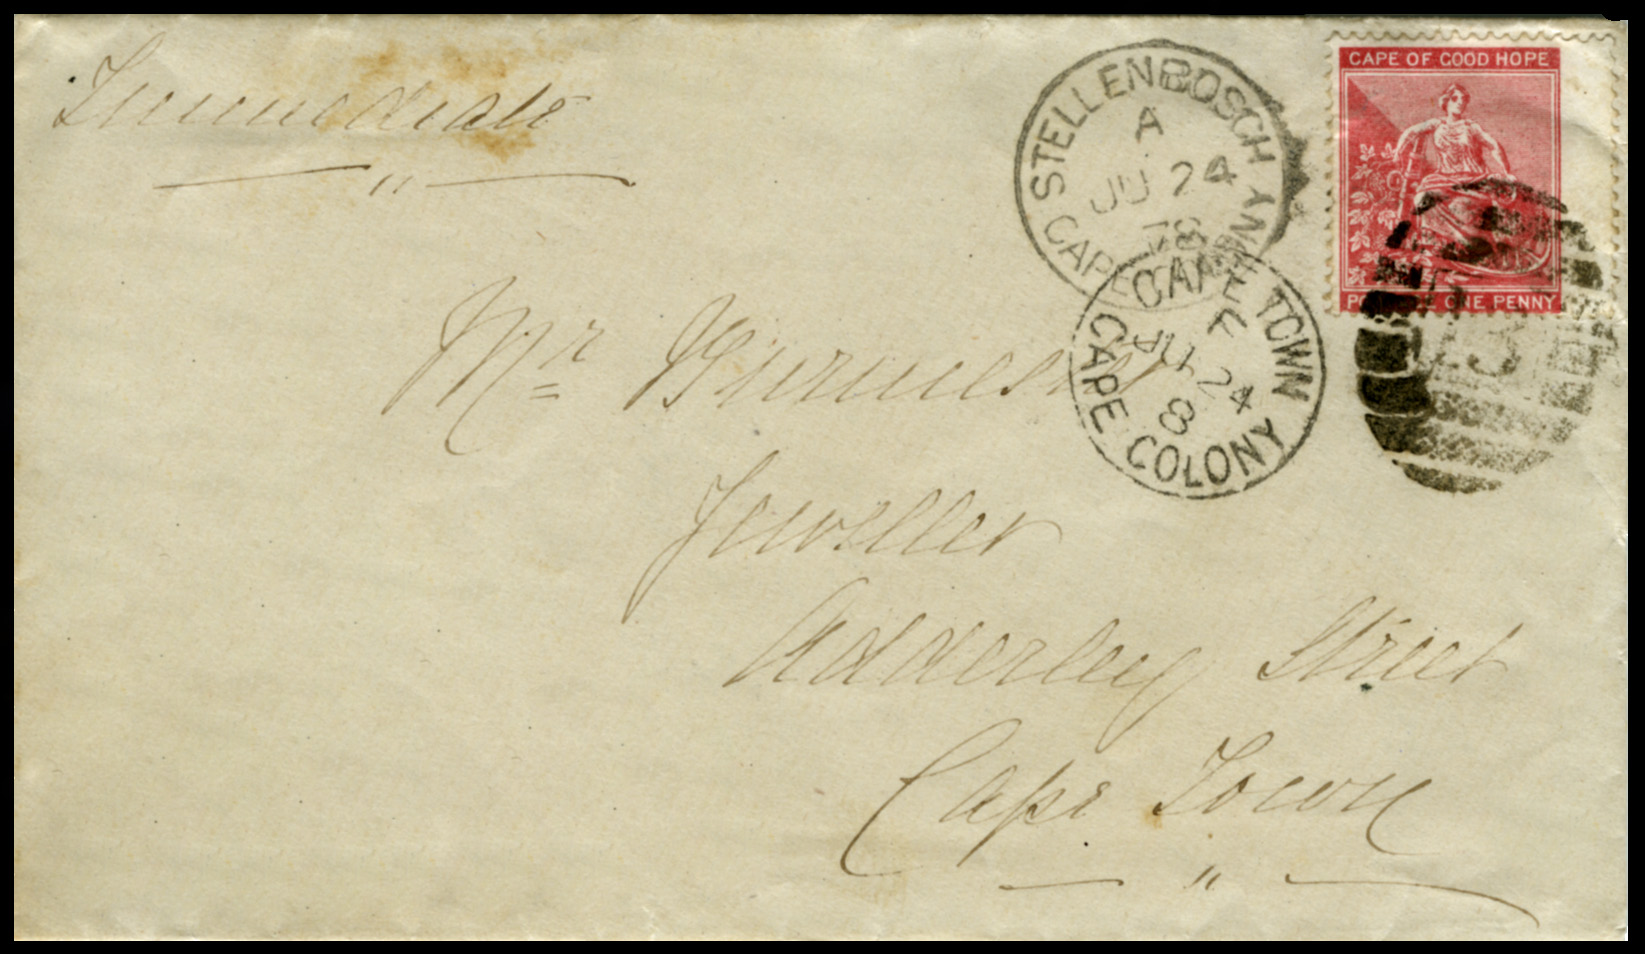 Immediate
STELLENBOSCH
A
JU 24
78
CAPE COLONY
CAPE OF GOOD HOPE
ONE PENNY
CAPE TOWN
JU 24
8
CAPE COLONY
Mr
Jeweller
Adderley Street
Cape Town